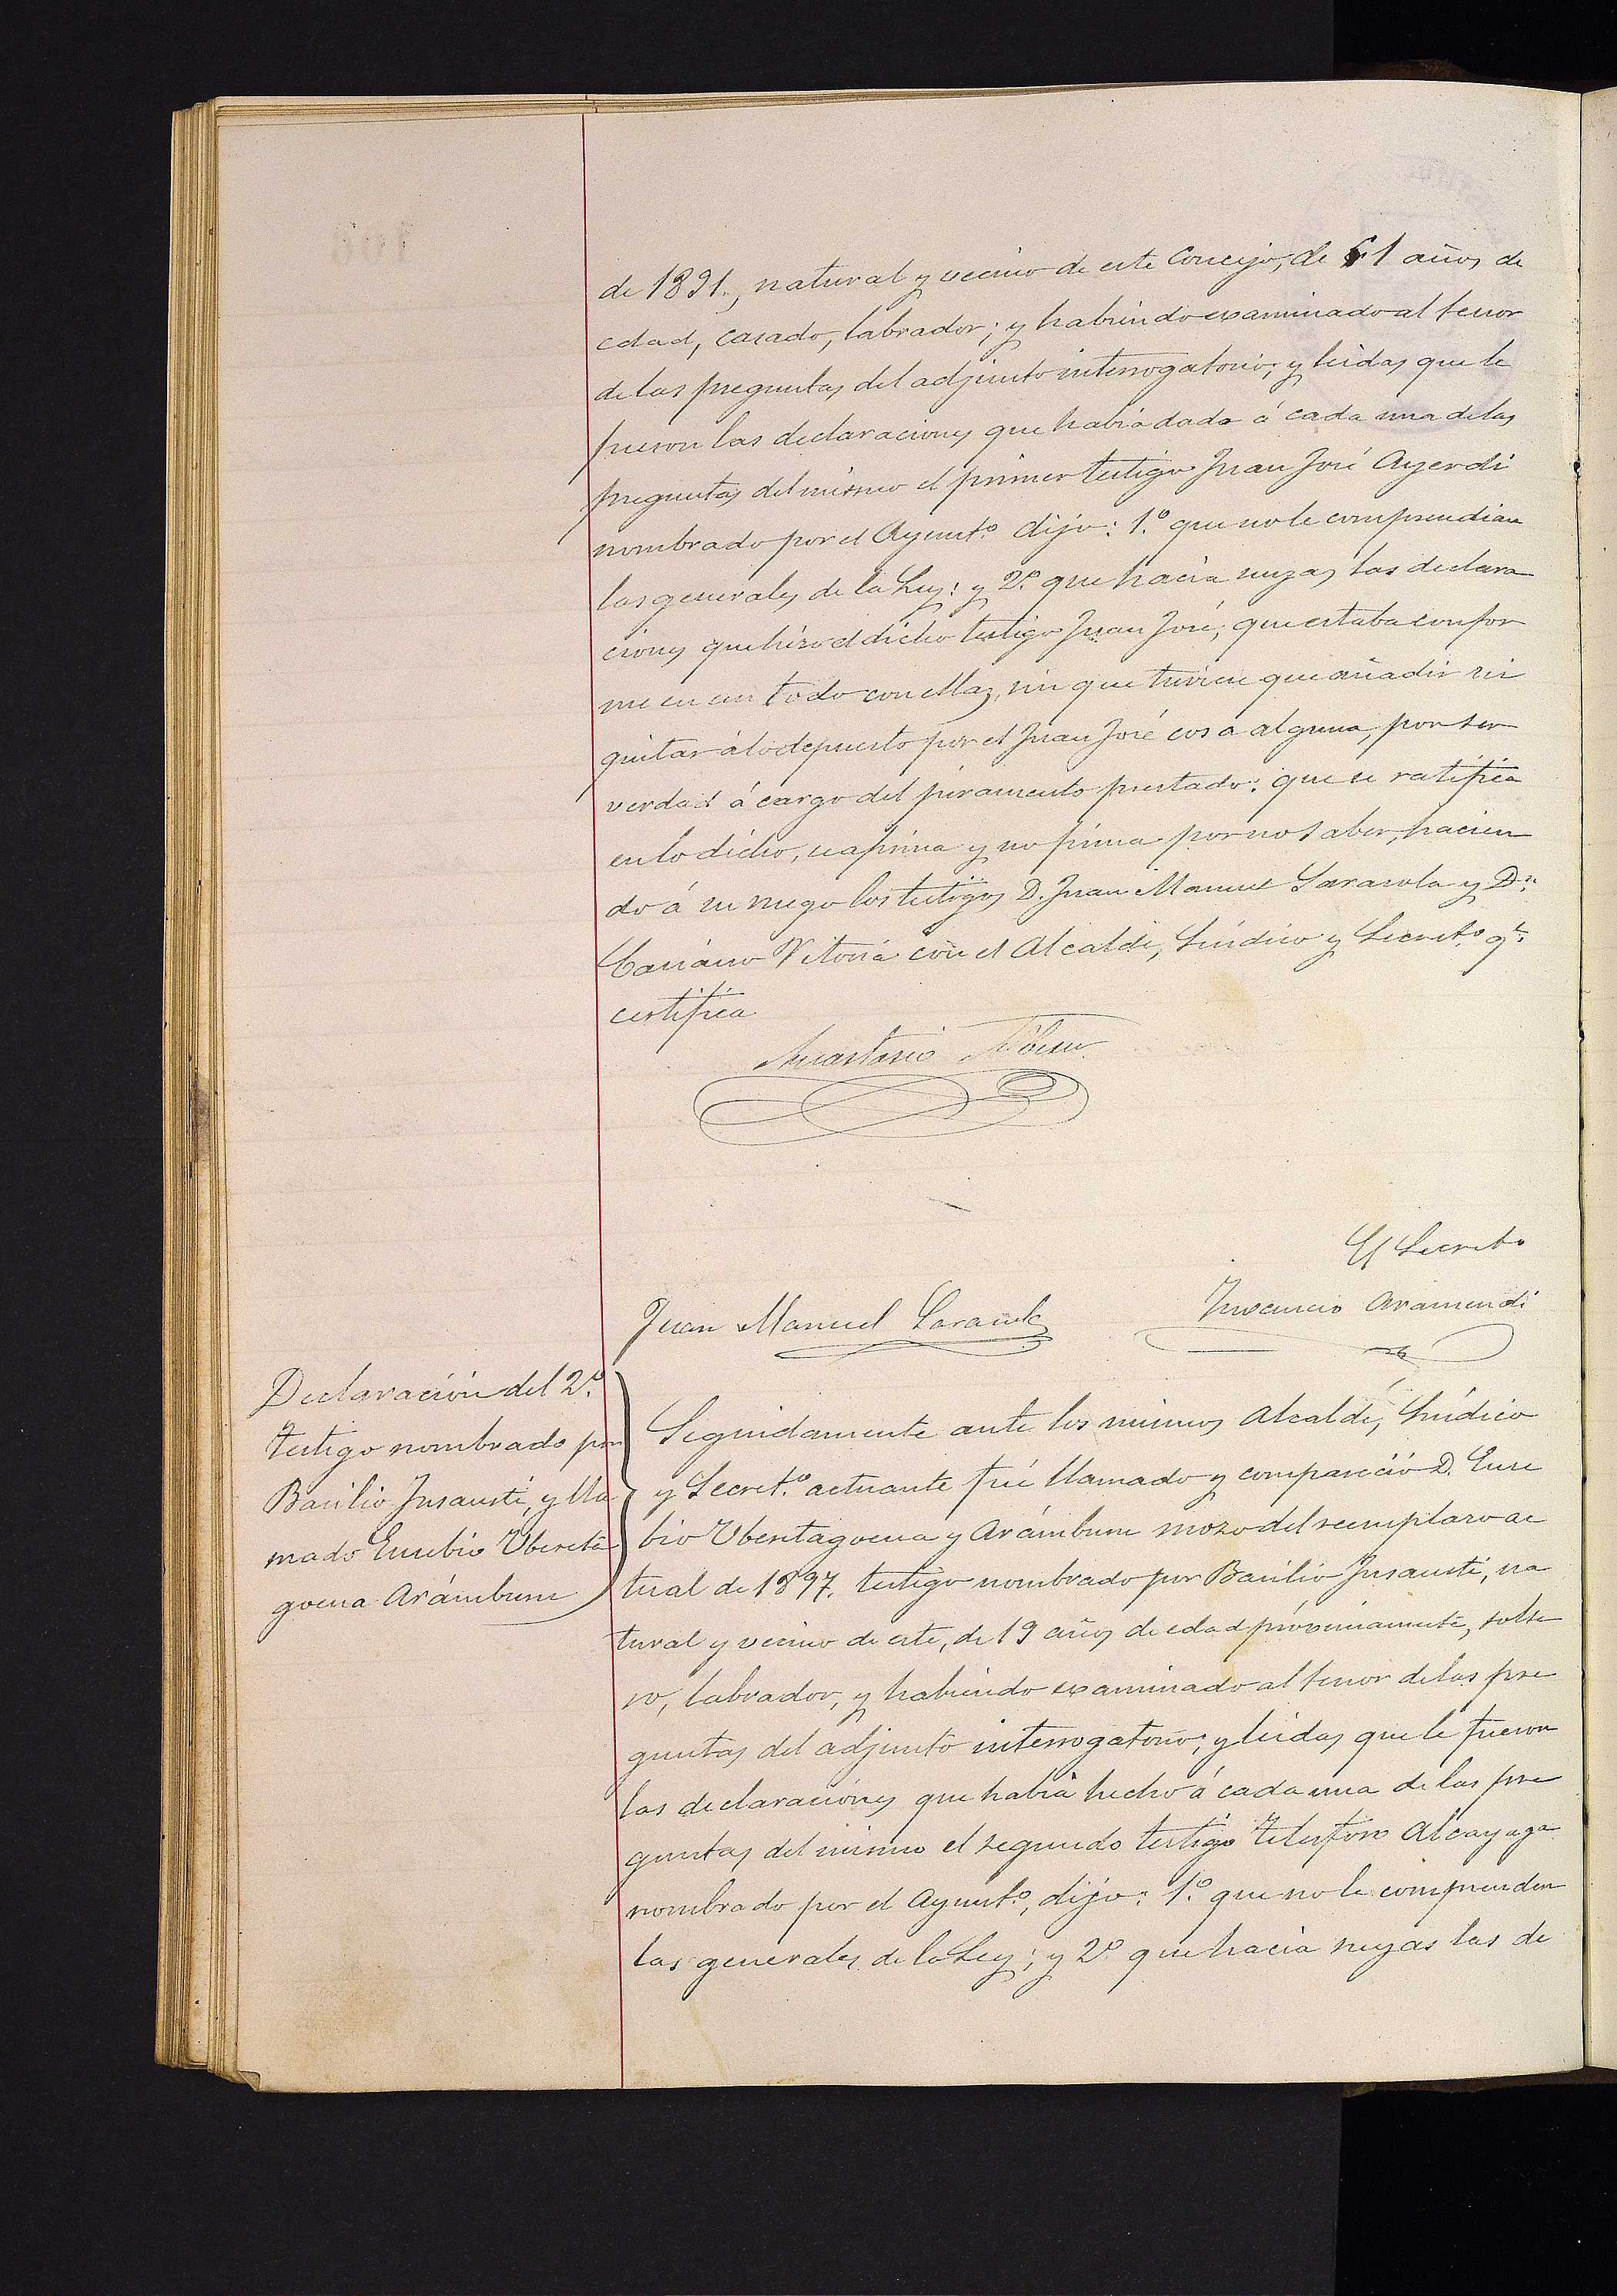 de 1891., natural y vecino de este Concejo, de 61 años de
edad, casado, labrador; y habiendo examinado al tenor
de las preguntas del adjunto interrogatorio; y leidas que le
fueron las declaraciones que habia dado á cada una de las
preguntas del mismo el primer testigo Juan José Ayerdi
nombrado por el Ayunt.º dijo: 1.º que no le comprendian
las generales de la Ley: y 2.º que hacia suyas las declara
ciones que hizo el dicho testigo Juan José, que estaba confor
me en un todo con ellas, sin que tuviese que añadir ni
quitar á lo depuesto por el Juan José cosa alguna, por ser
verdad á cargo del juramento prestado: que se ratifica
en lo dicho, se afirma y no firma por no saber, hacien
do á su ruego los testigos D. Juan Manuel Sarasola y D.n
Vitoria con el Alcalde, Síndico y Secret.º q.e
certifica
Anastasio
El Secret.º
Juan Manuel Sarasola
Inocencio Aramendi
Declaración del 2.º
testigo nombrado por
Basilio Insausti, y lla
mado Eusebio Ubereta
goena Arámburu
Seguidamente ante los mismos Alcalde, Síndico
y Secret.º actuante fué llamado y compareció D. Euse
bio Uberetagoena y Arámburu mozo del reemplazo ac
tual de 1897. testigo nombrado por Basilio Insausti, na
tural y vecino de este, de 19 años de edad próximamente, solte
ro, labrador, y habiendo examinado al tenor de las pre
guntas del adjunto interrogatorio; y leidas que le fueron
las declaraciones que habia hecho á cada una de las pre
guntas del mismo el segundo testigo Telesforo Alcayaga
nombrado por el Ayunt.º, dijo: 1.º que no le comprenden
las generales de la Ley; y 2.º que hacia suyas las de